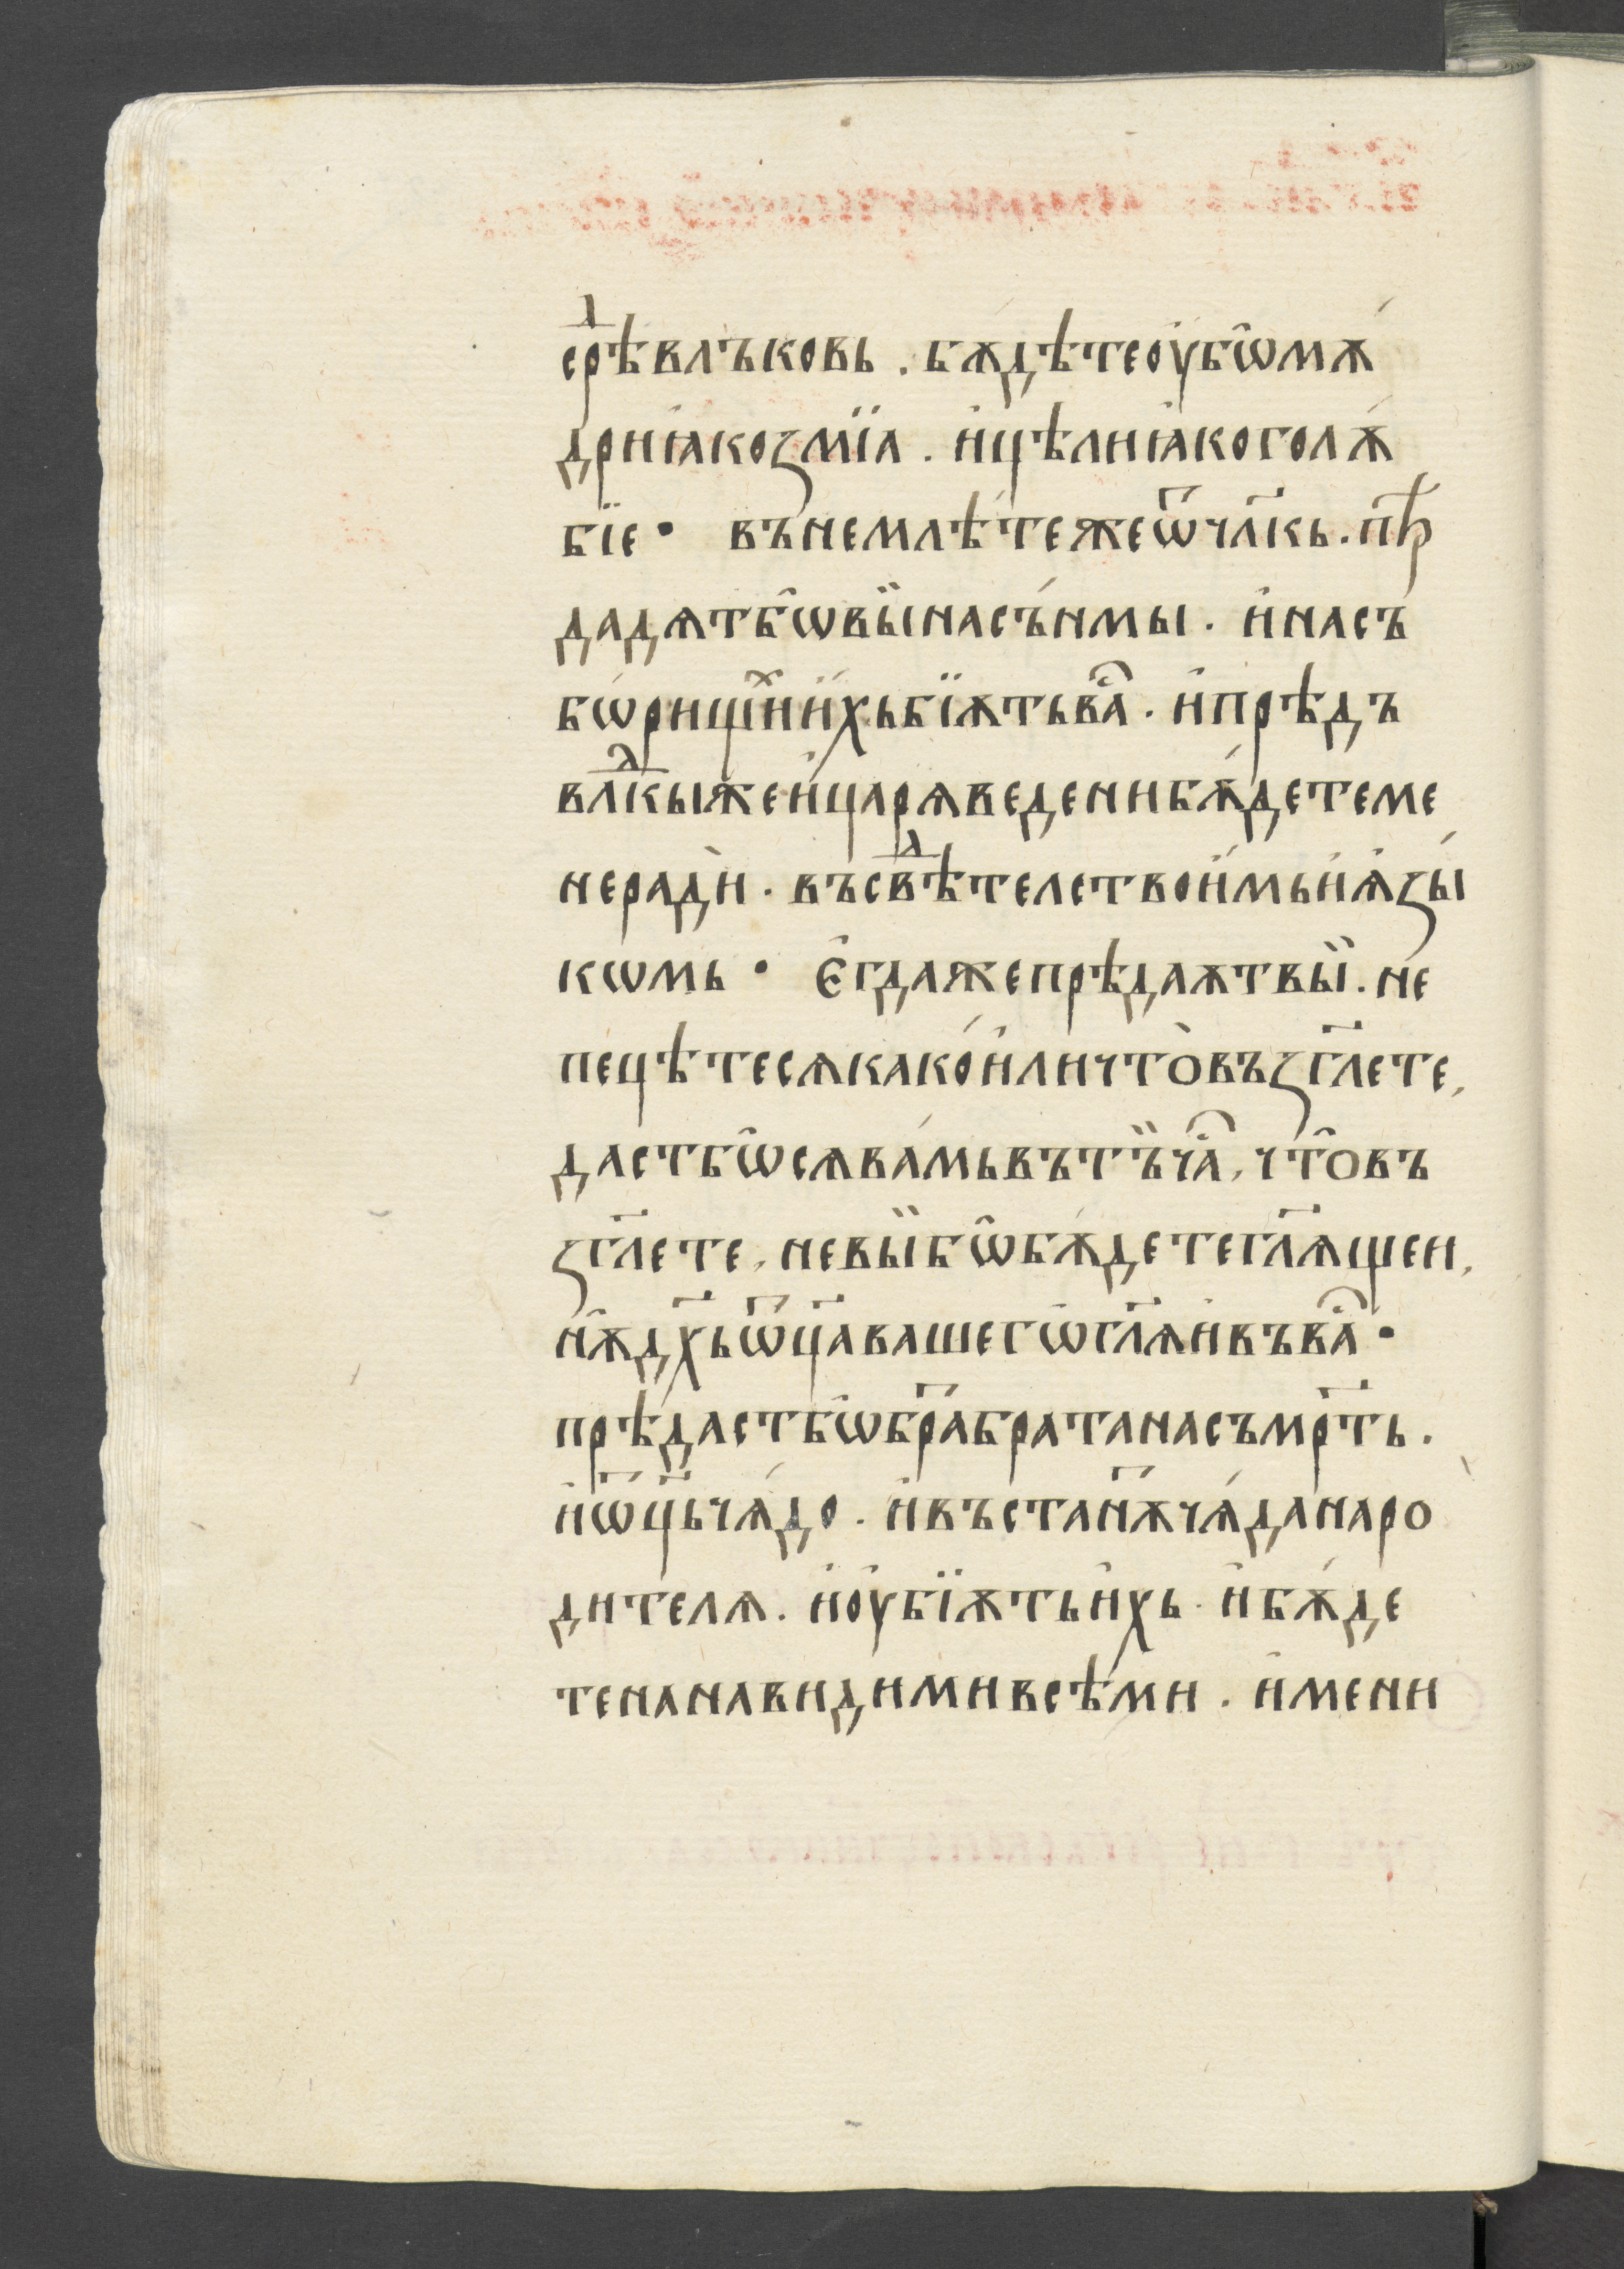 срⷣѣ влъковь . бѫдѣте оу҆бѡ̑ мѫ́
дрни ꙗ҆ко змїа . и҆ цѣлни ꙗ҆ко голѫ́
бїе · вънемлѣ́те же ѿ чл҃кь . прѣ
дадѧт бѡ̑ вы̏ на съ́нмы . и҆ на съ
бѡ́рищиⷯ и҆́хь бїѫть ваⷭ҇ . и҆ прѣдъ
влⷣкы же и҆ царѧ ведени бѫ́дете ме
не ради̏ . въ свⷣѣтелство и҆́мь и҆ ѧ҆зы́
кѡмь · Е҆гда же прѣдаѫт вы̏ . не
пецѣ́те сѧ како́ и҆ли что̀ въ зг҃лете ,
даст бѡ̑ сѧ ва́мь въ тъ̏ чаⷭ҇ , что̑ въ
зг҃лете , не вы̏ бѡ̑ бѫ́дете гл҃ѧщеи ,
нѫ̑ дх҃ь ѿц҃а вашегѡ̑ гл҃ѧи въ ваⷭ҇ ·
прѣ́даст бѡ̑ бра҃ брата на съмрт҃ь .
и҆ ѿц҃ь чѧ́до . и҆ въстан҃ѫ чѧ́да на ро
дителѧ . и҆ оу҆бїѫть и҆́хь . и҆ бѫ́де
те нанавидими всѣ́ми . и҆мени